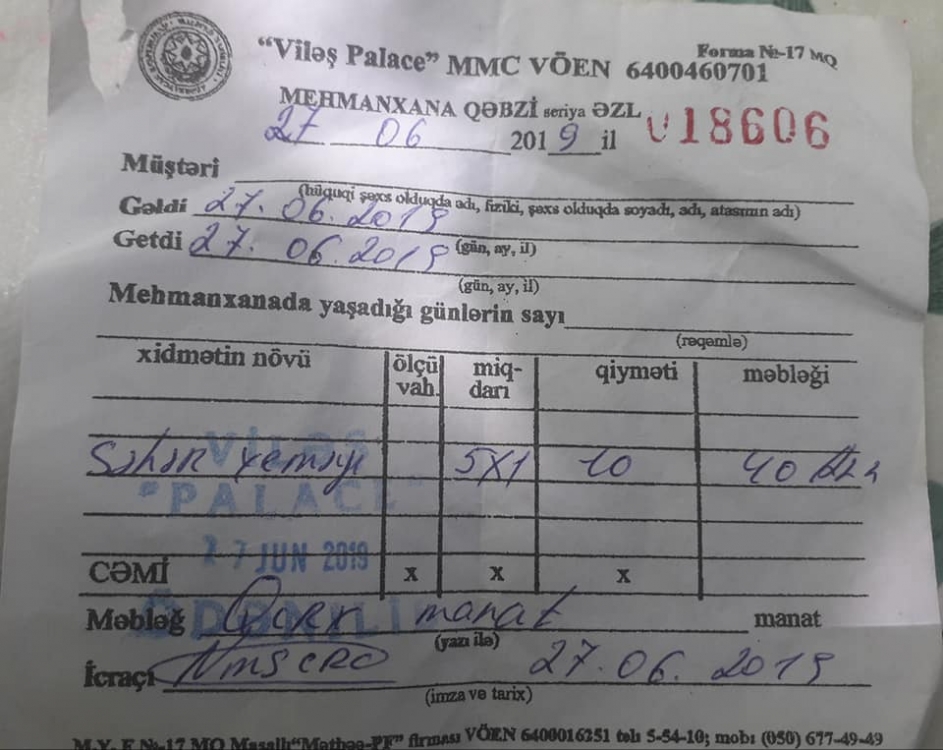 Forma №-17 MQ
"Viləş Palace" MMC VÖEN 6400460701
MEHMANXANA QƏBZİ seriya ƏZL 018606
27 06 2019 il
Müştəri
(hüquqi şəxs olduqda adı, fiziki, şəxs olduqda soyadı, adı, atasının adı)
Gəldi 27. 06. 2019
(gün, ay, il)
Getdi 27. 06. 2019
(gün, ay, il)
Mehmanxanada yaşadığı günlərin sayı
(rəqəmlə)
xidmətin növü ölçü vah. miq-darı qiyməti məbləği
Səhər yeməyi 5X1 10 40
VİLƏŞ
"PALACE"
27 JUN 2019
CƏMİ x x x
ÖDƏNİLİ
Məbləğ manat manat
(yazı ilə)
İcraçı 27. 06. 2019
(imza və tarix)
M.Y. F №-17 MQ Masallı "Mətbəə-PF" firması VÖEN 6400016251 tel: 5-54-10; mob: (050) 677-49-49